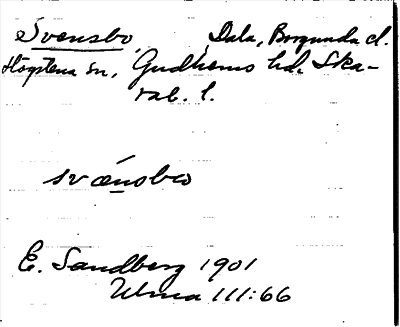 Svensbo, Dala, Borgunda o.
Högstena sn, Gudhems hd. Ska-
rab. l.
svænsbω
E. Sandberg 1901
Ulma 111:66